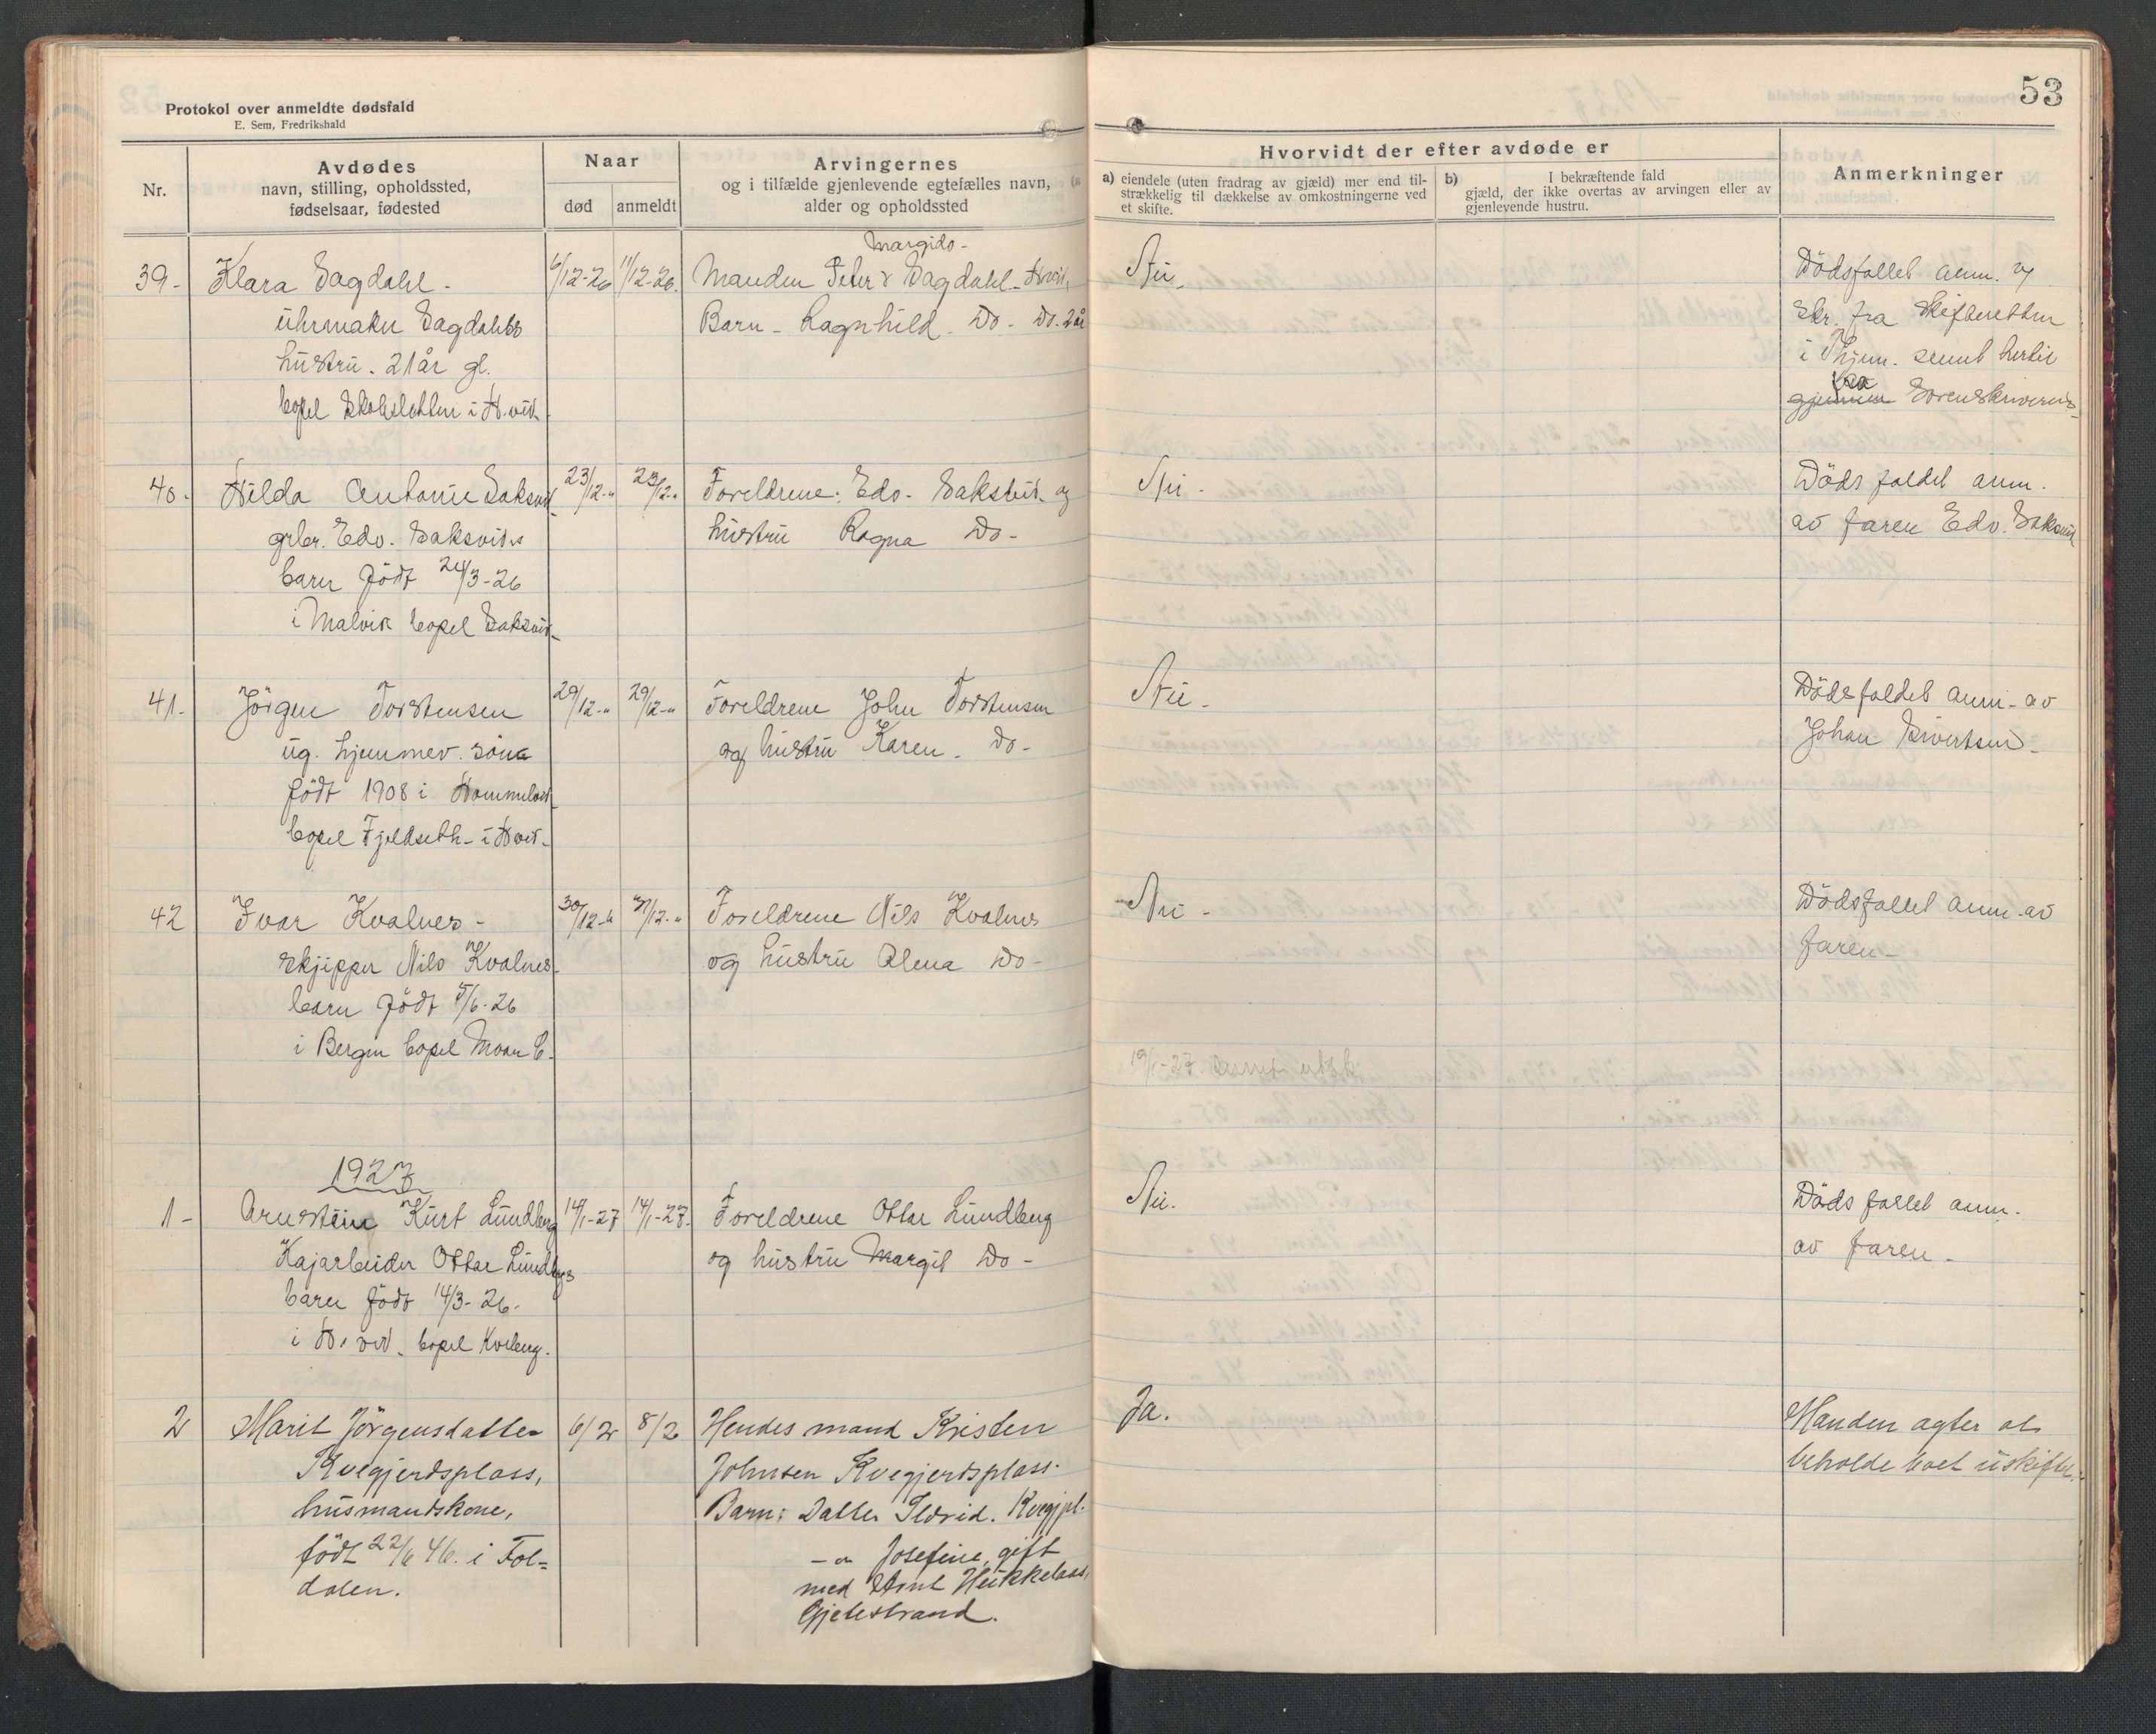 53
Protokol over anmeldte dødsfald
E. Sem, Fredrikshald
Nr.
Avdødes
navn, stilling, opholdssted,
fødselsaar, fødested
Naar
død
anmeldt
Arvingernes
og i tilfælde gjenlevende egtefælles navn,
alder og opholdssted
Hvorvidt der efter avdøde er
a) eiendele (uten fradrag av gjæld) mer end til-
strækkelig til dækkelse av omkostningerne ved
et skifte.
b) I bekræftende fald
gjæld, der ikke overtas av arvingen eller av
gjenlevende hustru.
Anmerkninger
39-
Klara Sagdahl -
uhrmaker Sagdahls
hustru. 21 år gl.
bopel i H.vik
6/12-26
11/12-26.
Margido-
Manden Peter Sagdahl - H.vik,
Barn - Ragnhild - Do - Do. 2 år
Nei.
Dödsfallet anm. og
skr. fra Skifteretten
i Thjem. sendt hertil
fra
gjennem Sorenskriveren-
40-
Hilda Antonie Saksvik
grbr. Edv. Saksviks
barn födt 24/3-26
i Malvik bopel Saksvik-
23/12-"
23/12-"
Foreldrene: Edv. Saksvik og
hustru Ragna Do-
Nei -
Dödsfaldet anm.
av faren Edv. Saksvik
41-
Jörgen Torstensen
ug. hjemmev. sön
födt 1908 i Hommelvik
bopel Fjeldseth - i H.vik-
29/12-"
29/12-"
Foreldrene John Torstensen
og hustru Karen - Do-
Nei -
Dödsfaldet anm. av
Johan Sivertsen-
42
Ivar Kvalnes -
skjipper Nils Kvalnes-
barn födt 5/6-26
i Bergen bopel Moan
30/12-"
31/12-"
Foreldrene Nils Kvalnes
og hustru Alena Do-
Nei -
Dödsfallet anm. av
faren-
19/1-27 sendt
1927
1-
Arnstein Kurt Lundberg
Kajarbeider Ottar Lundbergs
barn födt 14/3-26-
i H.vik - bopel Kvieberg.
14/1-27
14/1-27-
Foreldrene Ottar Lundberg
og hustru Margit Do-
Nei.
Dödsfallet anm.
av faren-
2
Marit Jörgensdatter
Kvegjerdsplass,
husmandskone,
födt 22/6 46. i Fol=
dalen.
6/2
8/2
Hendes mand Kristen
Johnsen Kvegjerdsplass.
Barn: Datter Ildrid. Kvegjpl.
-"- Josefine, gift
med Arnt Hukkelaas,
Gjetestrand.
Ja.
Manden agter at
beholde boet uskiftet.